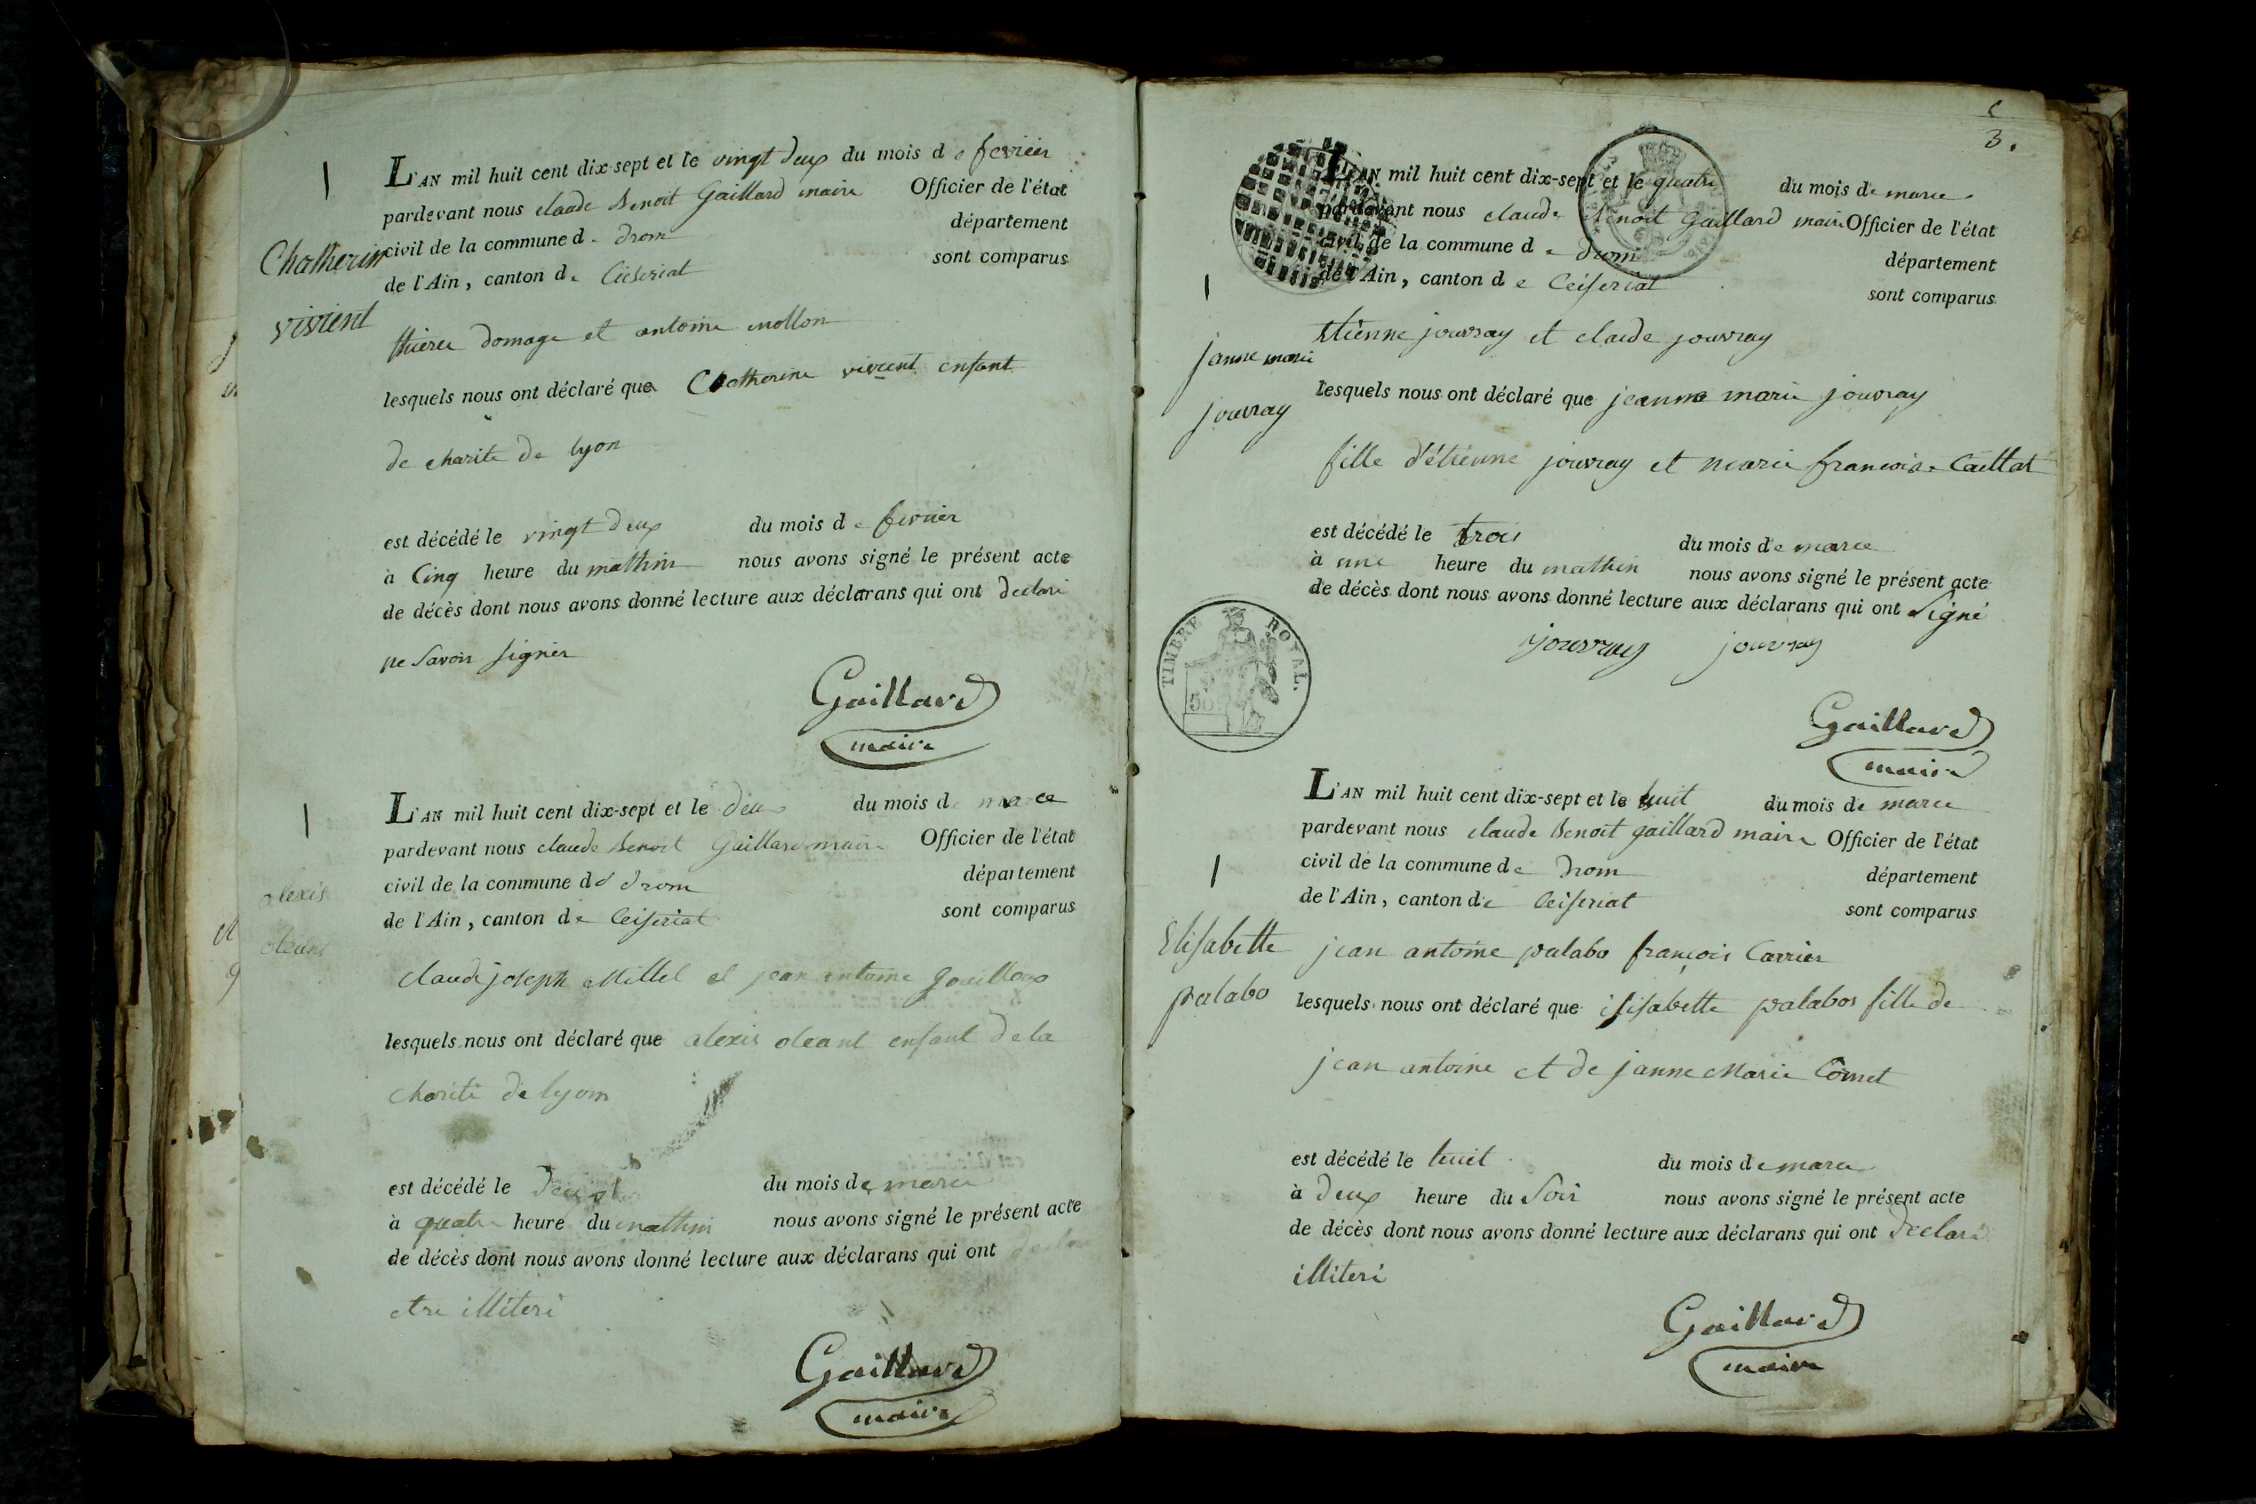 L'AN mil huit cent dix-sept et le vingt deux du mois de fevrier
pardevant nous claude Benoit Gaillard maire Officier de l'état
civil de la commune de Drom département
de l'Ain, canton de Ceiseriat sont comparus
Chatherin
vivient
domage et antoine mollon
lesquels nous ont déclaré que Chatherine vivient enfant
de charite de lyon
est décédé le vingt deux du mois de fevrier
à Cinq heure du mathin nous avons signé le présent acte
de décès dont nous avons donné lecture aux déclarans qui ont declaré
ne Savoir signer
Gaillard
maire
L'AN mil huit cent dix-sept et le deux du mois de marce
pardevant nous claude Benoit Gaillard maire Officier de l'état
civil de la commune de drom département
de l'Ain, canton de Ceiseriat sont comparus
alexis
oleant
claude joseph Millet et jean antoine gouilloux
lesquels nous ont déclaré que alexis oleant enfant de la
charité de lyon
est décédé le du mois de marce
à quatre heure du mathin nous avons signé le présent acte
de décès dont nous avons donné lecture aux déclarans qui ont declaré
etre illiteri
Gaillard
maire
3.
L'AN mil huit cent dix-sept et le quatre du mois de marce
pardevant nous claude Benoit Gaillard maire Officier de l'état
civil de la commune de Drom département
de l'Ain, canton de Ceiseriat sont comparus
janne marie
jouvray
Etienne jouvray et claude jouvray
lesquels nous ont déclaré que jeanne marie jouvray
fille d'étienne jouvray et marie francoise Caillat
est décédé le trois du mois de marce
à une heure du mathin nous avons signé le présent acte
de décès dont nous avons donné lecture aux déclarans qui ont Signé
jouvray jouvray
TIMBRE ROYAL.
50
Gaillard
maire
L'AN mil huit cent dix-sept et le huit du mois de marce
pardevant nous claude Benoit gaillard maire Officier de l'état
civil de la commune de Drom département
de l'Ain, canton de Ceiseriat sont comparus
Elisabette
palabo
jean antoine palabo françois Carrier
lesquels nous ont déclaré que elisabette palabos fille de
jean antoine et de janne Marie Comet
est décédé le huit du mois de marce
à deux heure du Soir nous avons signé le présent acte
de décès dont nous avons donné lecture aux déclarans qui ont declaré
illiteri
Gaillard
maire